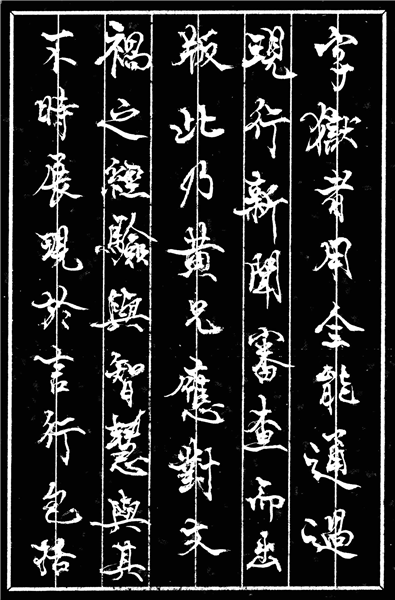 字獄者用全能通過
現行新聞審查而出
版此乃黃兄應對文
禍之經驗與智慧與其
不時展現於言行包括